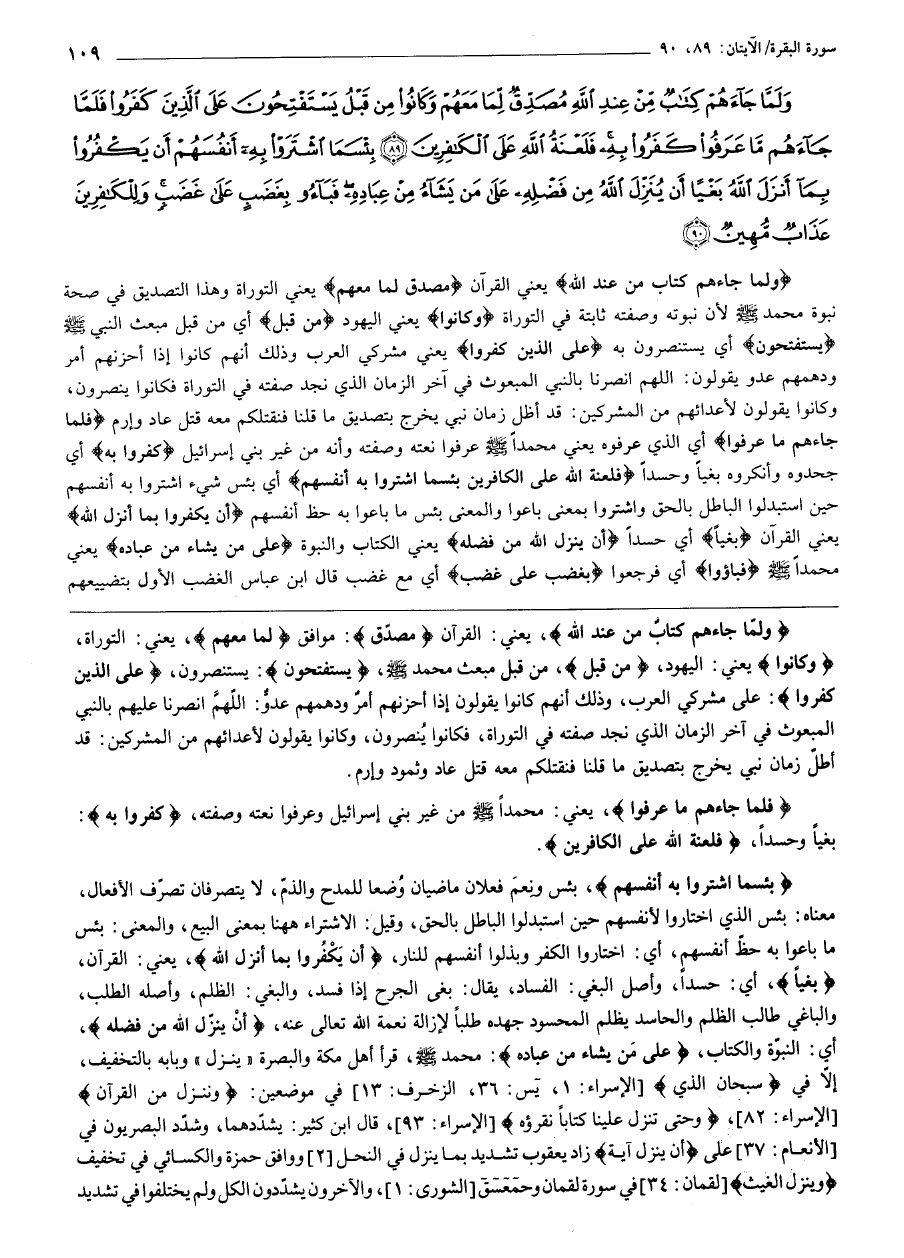 سورة البقرة/ الآيتان: ٨٩، ٩٠ ١٠٩
وَلَمَّا جَآءَهُمْ كِتَٰبٌ مِّنْ عِندِ ٱللَّهِ مُصَدِّقٌ لِّمَا مَعَهُمْ وَكَانُوا۟ مِن قَبْلُ يَسْتَفْتِحُونَ عَلَى ٱلَّذِينَ كَفَرُوا۟ فَلَمَّا
جَآءَهُم مَّا عَرَفُوا۟ كَفَرُوا۟ بِهِۦ ۚ فَلَعْنَةُ ٱللَّهِ عَلَى ٱلْكَٰفِرِينَ ﴿٨٩﴾ بِئْسَمَا ٱشْتَرَوْا۟ بِهِۦٓ أَنفُسَهُمْ أَن يَكْفُرُوا۟
بِمَآ أَنزَلَ ٱللَّهُ بَغْيًا أَن يُنَزِّلَ ٱللَّهُ مِن فَضْلِهِۦ عَلَىٰ مَن يَشَآءُ مِنْ عِبَادِهِۦ ۖ فَبَآءُو بِغَضَبٍ عَلَىٰ غَضَبٍ ۚ وَلِلْكَٰفِرِينَ
عَذَابٌ مُّهِينٌ ﴿٩٠﴾
﴿ولما جاءهم كتاب من عند الله﴾ يعني القرآن ﴿مصدق لما معهم﴾ يعني التوراة وهذا التصديق في صحة
نبوة محمد ﷺ لأن نبوته وصفته ثابتة في التوراة ﴿وكانوا﴾ يعني اليهود ﴿من قبل﴾ أي من قبل مبعث النبي ﷺ
﴿يستفتحون﴾ أي يستنصرون به ﴿على الذين كفروا﴾ يعني مشركي العرب وذلك أنهم كانوا إذا أحزنهم أمر
ودهمهم عدو يقولون: اللهم انصرنا بالنبي المبعوث في آخر الزمان الذي نجد صفته في التوراة فكانوا ينصرون،
وكانوا يقولون لأعدائهم من المشركين: قد أظل زمان نبي يخرج بتصديق ما قلنا فنقتلكم معه قتل عاد وإرم ﴿فلما
جاءهم ما عرفوا﴾ أي الذي عرفوه يعني محمداً ﷺ عرفوا نعته وصفته وأنه من غير بني إسرائيل ﴿كفروا به﴾ أي
جحدوه وأنكروه بغياً وحسداً ﴿فلعنة الله على الكافرين بئسما اشتروا به أنفسهم﴾ أي بئس شيء اشتروا به أنفسهم
حين استبدلوا الباطل بالحق واشتروا بمعنى باعوا والمعنى بئس ما باعوا به حظ أنفسهم ﴿أن يكفروا بما أنزل الله﴾
يعني القرآن ﴿بغياً﴾ أي حسداً ﴿أن ينزل الله من فضله﴾ يعني الكتاب والنبوة ﴿على من يشاء من عباده﴾ يعني
محمداً ﷺ ﴿فباؤوا﴾ أي فرجعوا ﴿بغضب على غضب﴾ أي مع غضب قال ابن عباس الغضب الأول بتضييعهم
﴿ ولمّا جاءهم كتابٌ من عند الله ﴾، يعني: القرآن ﴿ مصدّق ﴾: موافق ﴿ لما معهم ﴾، يعني: التوراة،
﴿ وكانوا ﴾ يعني: اليهود، ﴿ من قبل ﴾، من قبل مبعث محمد ﷺ، ﴿ يستفتحون ﴾: يستنصرون، ﴿ على الذين
كفروا ﴾: على مشركي العرب، وذلك أنهم كانوا يقولون إذا أحزنهم أمرٌ ودهمهم عدوٌّ: اللّهمّ انصرنا عليهم بالنبي
المبعوث في آخر الزمان الذي نجد صفته في التوراة، فكانوا يُنصرون، وكانوا يقولون لأعدائهم من المشركين: قد
أطلّ زمان نبي يخرج بتصديق ما قلنا فنقتلكم معه قتل عاد وثمود وإرم.
﴿ فلما جاءهم ما عرفوا ﴾، يعني: محمداً ﷺ من غير بني إسرائيل وعرفوا نعته وصفته، ﴿ كفروا به ﴾:
بغياً وحسداً، ﴿ فلعنة الله على الكافرين ﴾.
﴿ بئسما اشتروا به أنفسهم ﴾، بئس ونِعمَ فعلان ماضيان وُضعا للمدح والذمّ، لا يتصرفان تصرّف الأفعال،
معناه: بئس الذي اختاروا لأنفسهم حين استبدلوا الباطل بالحق، وقيل: الاشتراء ههنا بمعنى البيع، والمعنى: بئس
ما باعوا به حظّ أنفسهم، أي: اختاروا الكفر وبذلوا أنفسهم للنار، ﴿ أن يَكْفُروا بما أنزل الله ﴾، يعني: القرآن،
﴿ بغياً ﴾، أي: حسداً، وأصل البغي: الفساد، يقال: بغى الجرح إذا فسد، والبغي: الظلم، وأصله الطلب،
والباغي طالب الظلم والحاسد يظلم المحسود جهده طلباً لإزالة نعمة الله تعالى عنه، ﴿ أنْ ينزّل الله من فضله ﴾،
أي: النبوّة والكتاب، ﴿ على مَن يشاء من عباده ﴾: محمد ﷺ، قرأ أهل مكة والبصرة « ينـزل » وبابه بالتخفيف،
إلّا في ﴿ سبحان الذي ﴾ [الإسراء: ١، يّس: ٣٦، الزخـرف: ١٣] في موضعين: ﴿ وننـزل من القرآن ﴾
[الإسراء: ٨٢]، ﴿ وحتى تنزل علينا كتاباً نقرؤه ﴾ [الإسراء: ٩٣]، قال ابن كثير: يشدّدهما، وشدّد البصريون في
[الأنعـام: ٣٧] على ﴿أن ينزل آيـة﴾ زاد يعقوب تشـديد بمـا ينزل في النحـل [٢] ووافق حمزة والكسائي في تخفيف
﴿وينزل الغيث﴾ [لقمان: ٣٤] في سورة لقمان وحمّعّسّقّ [الشورى: ١]، والآخرون يشدّدون الكل ولم يختلفوا في تشديد